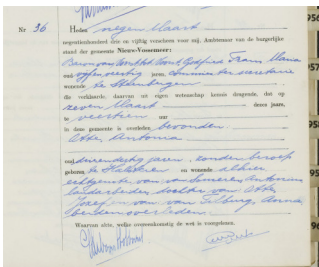 Nr 36 Heden negen Maart
negentienhonderd drie en vijftig verscheen voor mij, Ambtenaar van de burgerlijke
stand der gemeente Nieuw-Vossemeer:
Frans, Maria
oud vijfenveertig jaren, commies ter secretarie
wonende te Steenbergen
die verklaarde, daarvan uit eigen wetenschap kennis dragende, dat op
zeven Maart dezes jaars,
te veertien uur
in deze gemeente is overleden, bevonden:
Otte, Antonia
oud jaren, zonder beroep
geboren te Halsteren en wonende alhier
echtgenote van van Someren, Antonius
landarbeider, dochter van Otte,
Jozef en van van Tilburg, Anna,
beiden overleden.
Waarvan akte, welke overeenkomstig de wet is voorgelezen.